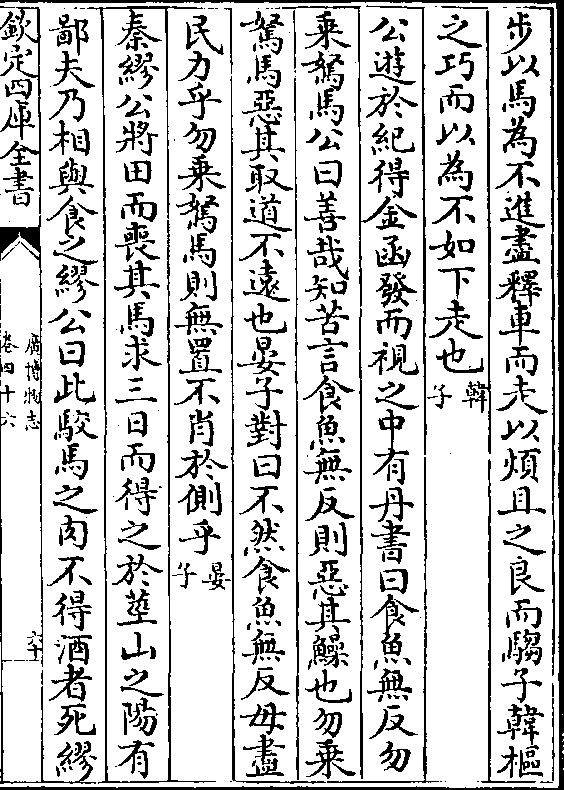 步以馬為不進盡釋車而走以煩且之良而騶子韓樞
之巧而以為不如下走也韓子
公遊於紀得金函發而視之中有丹書曰食魚無反勿
乘駑馬公曰善哉知苦言食魚無反則惡其鱢也勿乘
駑馬惡其取道不遠也晏子對曰不然食魚無反毋盡
民力乎勿乘駑馬則無置不肖於側乎晏子
秦繆公將田而喪其馬求三日而得之於莖山之陽有
鄙夫乃相與食之繆公曰此駮馬之肉不得酒者死繆
欽定四庫全書
廣博物志
卷四十六